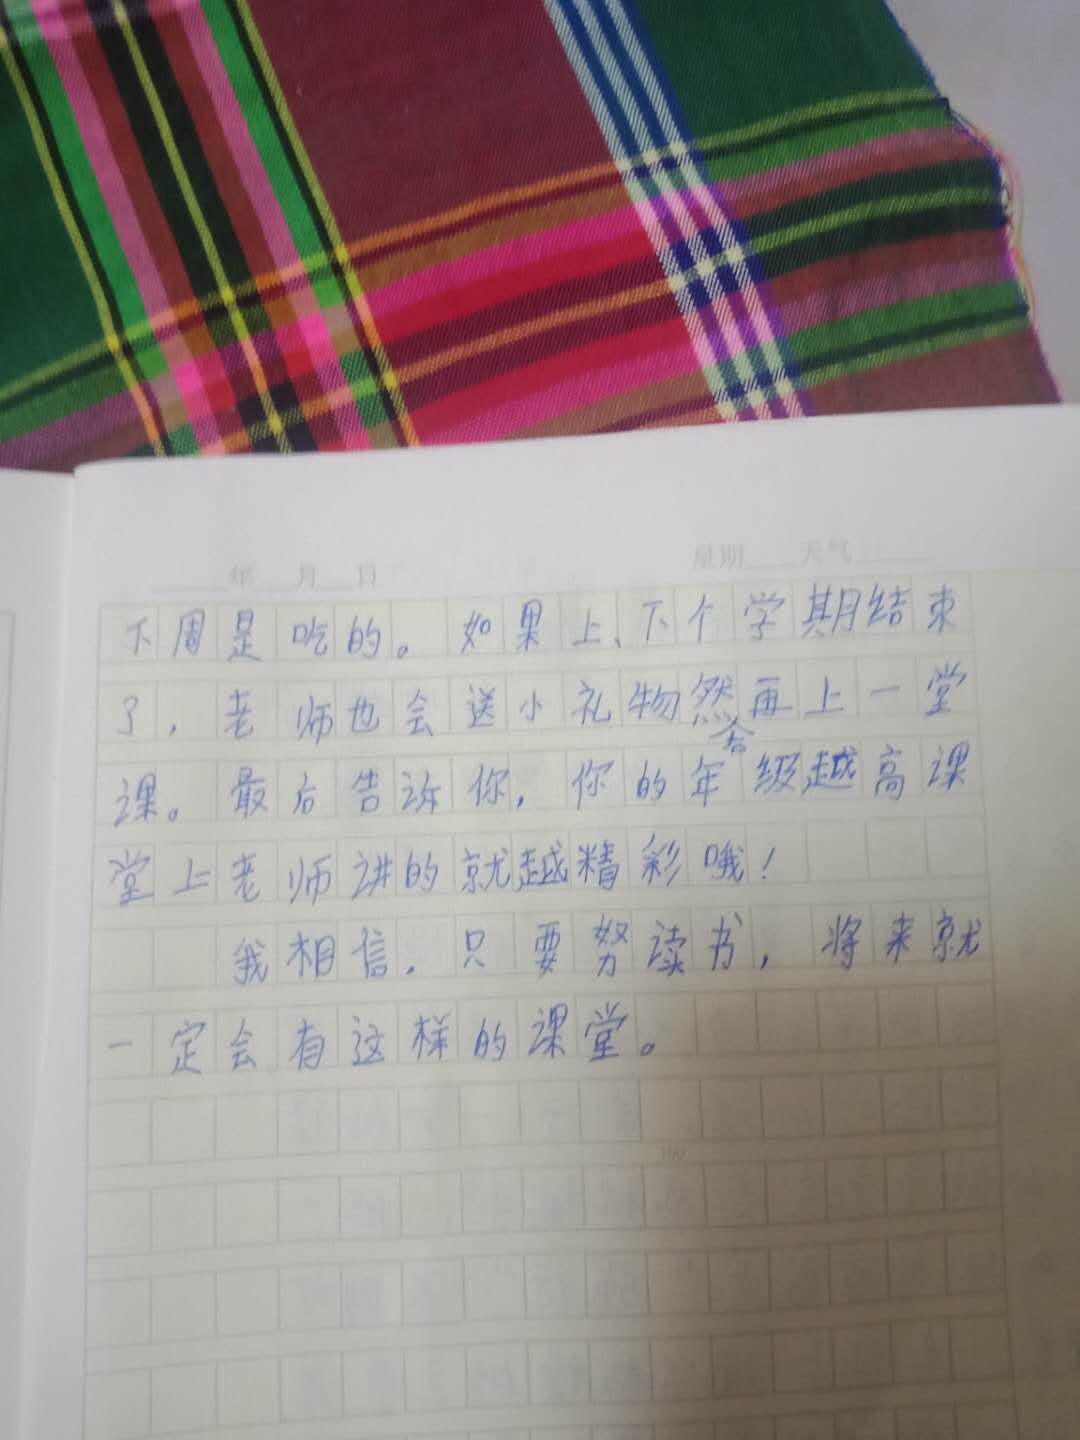 年 月 日 星期 天气
下周是吃的。如果上、下个学期结束
了，老师也会送小礼物然后再上一堂
课。最后告诉你，你的年级越高课
堂上老师讲的就越精彩哦！
我相信，只要努读书，将来就
一定会有这样的课堂。
100